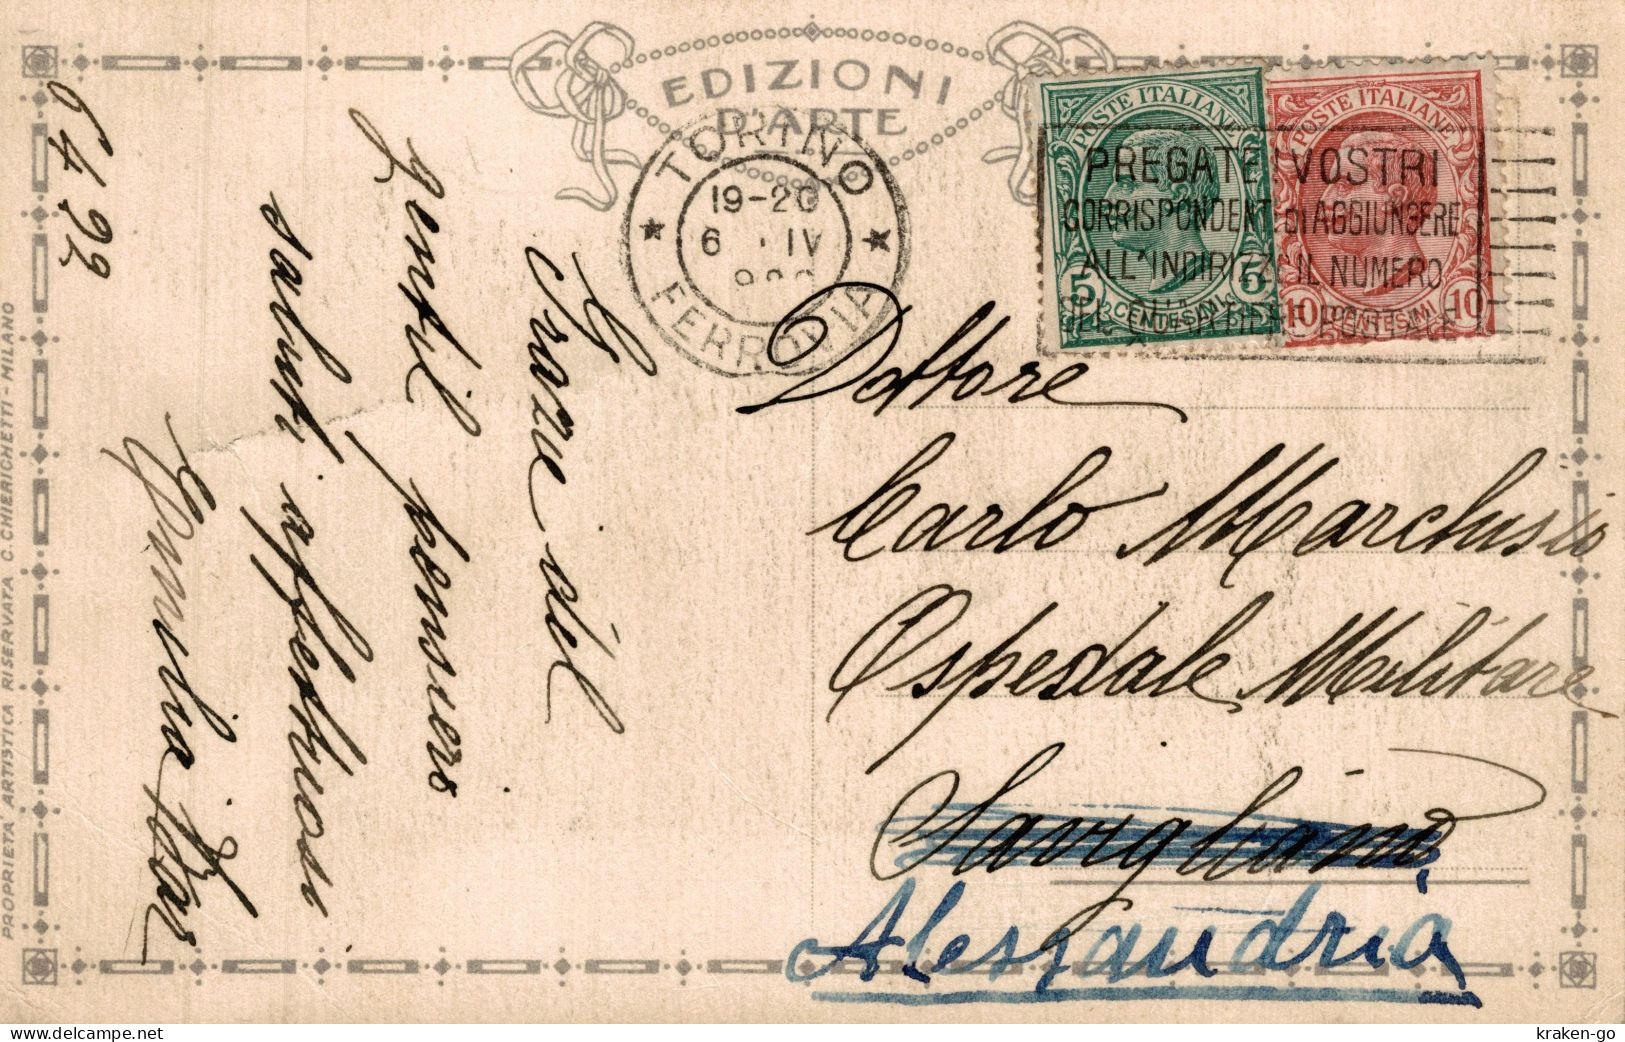 EDIZIONI
D'ARTE
TORINO
19-20
6 · IV
FERROVIA
POSTE ITALIANE
5 5
CENTESIMI
POSTE ITALIANE
10 10
CENTESIMI
PREGATE VOSTRI
CORRISPONDENTI DI AGGIUNGERE
ALL'INDIRIZZO IL NUMERO
DEL QUARTIERE POSTALE
6 4 22
Grazie del
gentil pensiero
saluti affettuosi
Dottore
Carlo Marchisio
Ospedale Militare
Savigliano
Alessandria
PROPRIETÀ ARTISTICA RISERVATA C. CHIERICHETTI - MILANO
kraken-go